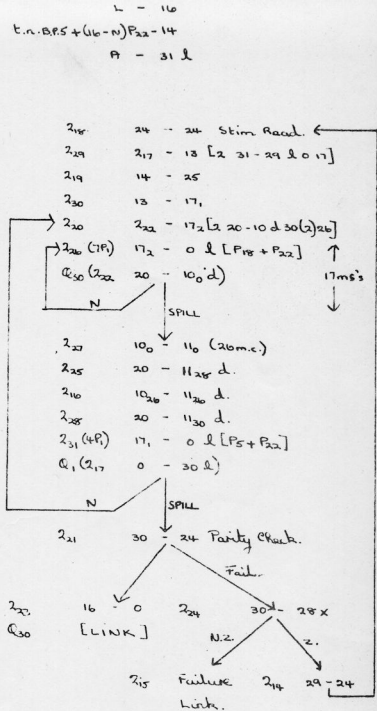 L - 16
t.n. B.P.5 + (16-N)P₂₂ - 14
A - 31 l
2₁₈ 24 - 24 Stim Read.
2₂₉ 2₁₇ - 13 [2 31 - 29 l 0 17]
2₁₉ 14 - 25
2₃₀ 13 - 17₁
2₂₀ 2₂₂ - 17₂ [2 20 - 10 d 30 (2) 26]
2₂₆ (7P₁) 17₂ - 0 l [P₁₈ + P₂₂]
Q₃₀ (2₂₂ 20 - 10₀ d)
17ms's
N
SPILL
2₂₇ 10₀ - 11₀ (26 m.c.)
2₂₅ 20 - 11₂₈ d.
2₁₆ 10₂₆ - 11₂₆ d.
2₂₈ 20 - 11₃₀ d.
2₃₁ (4P₁) 17₁ - 0 l [P₅ + P₂₂]
Q₁ (2₁₇ 0 - 30 l)
N
SPILL
2₂₁ 30 - 24 Parity Check.
Fail.
16 - 0 2₂₄ 30 - 28 x
Q₃₀ [LINK]
N.Z. Z.
2₁₅ Failure 2₁₄ 29 - 24
Link.